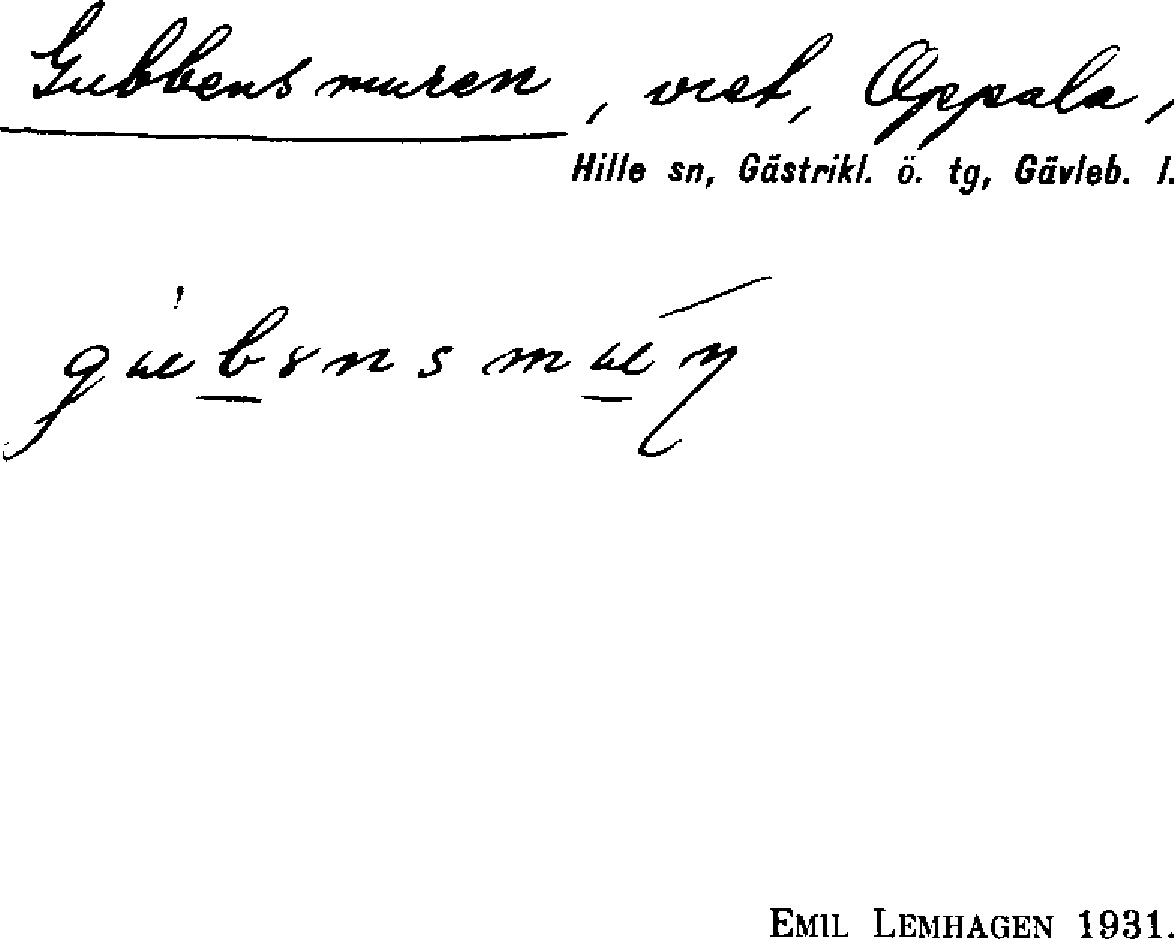 Gubbens muren, vret, Oppala,
Hille sn, Gästrikl. ö. tg, Gävleb. l.
EMIL LEMHAGEN 1931.